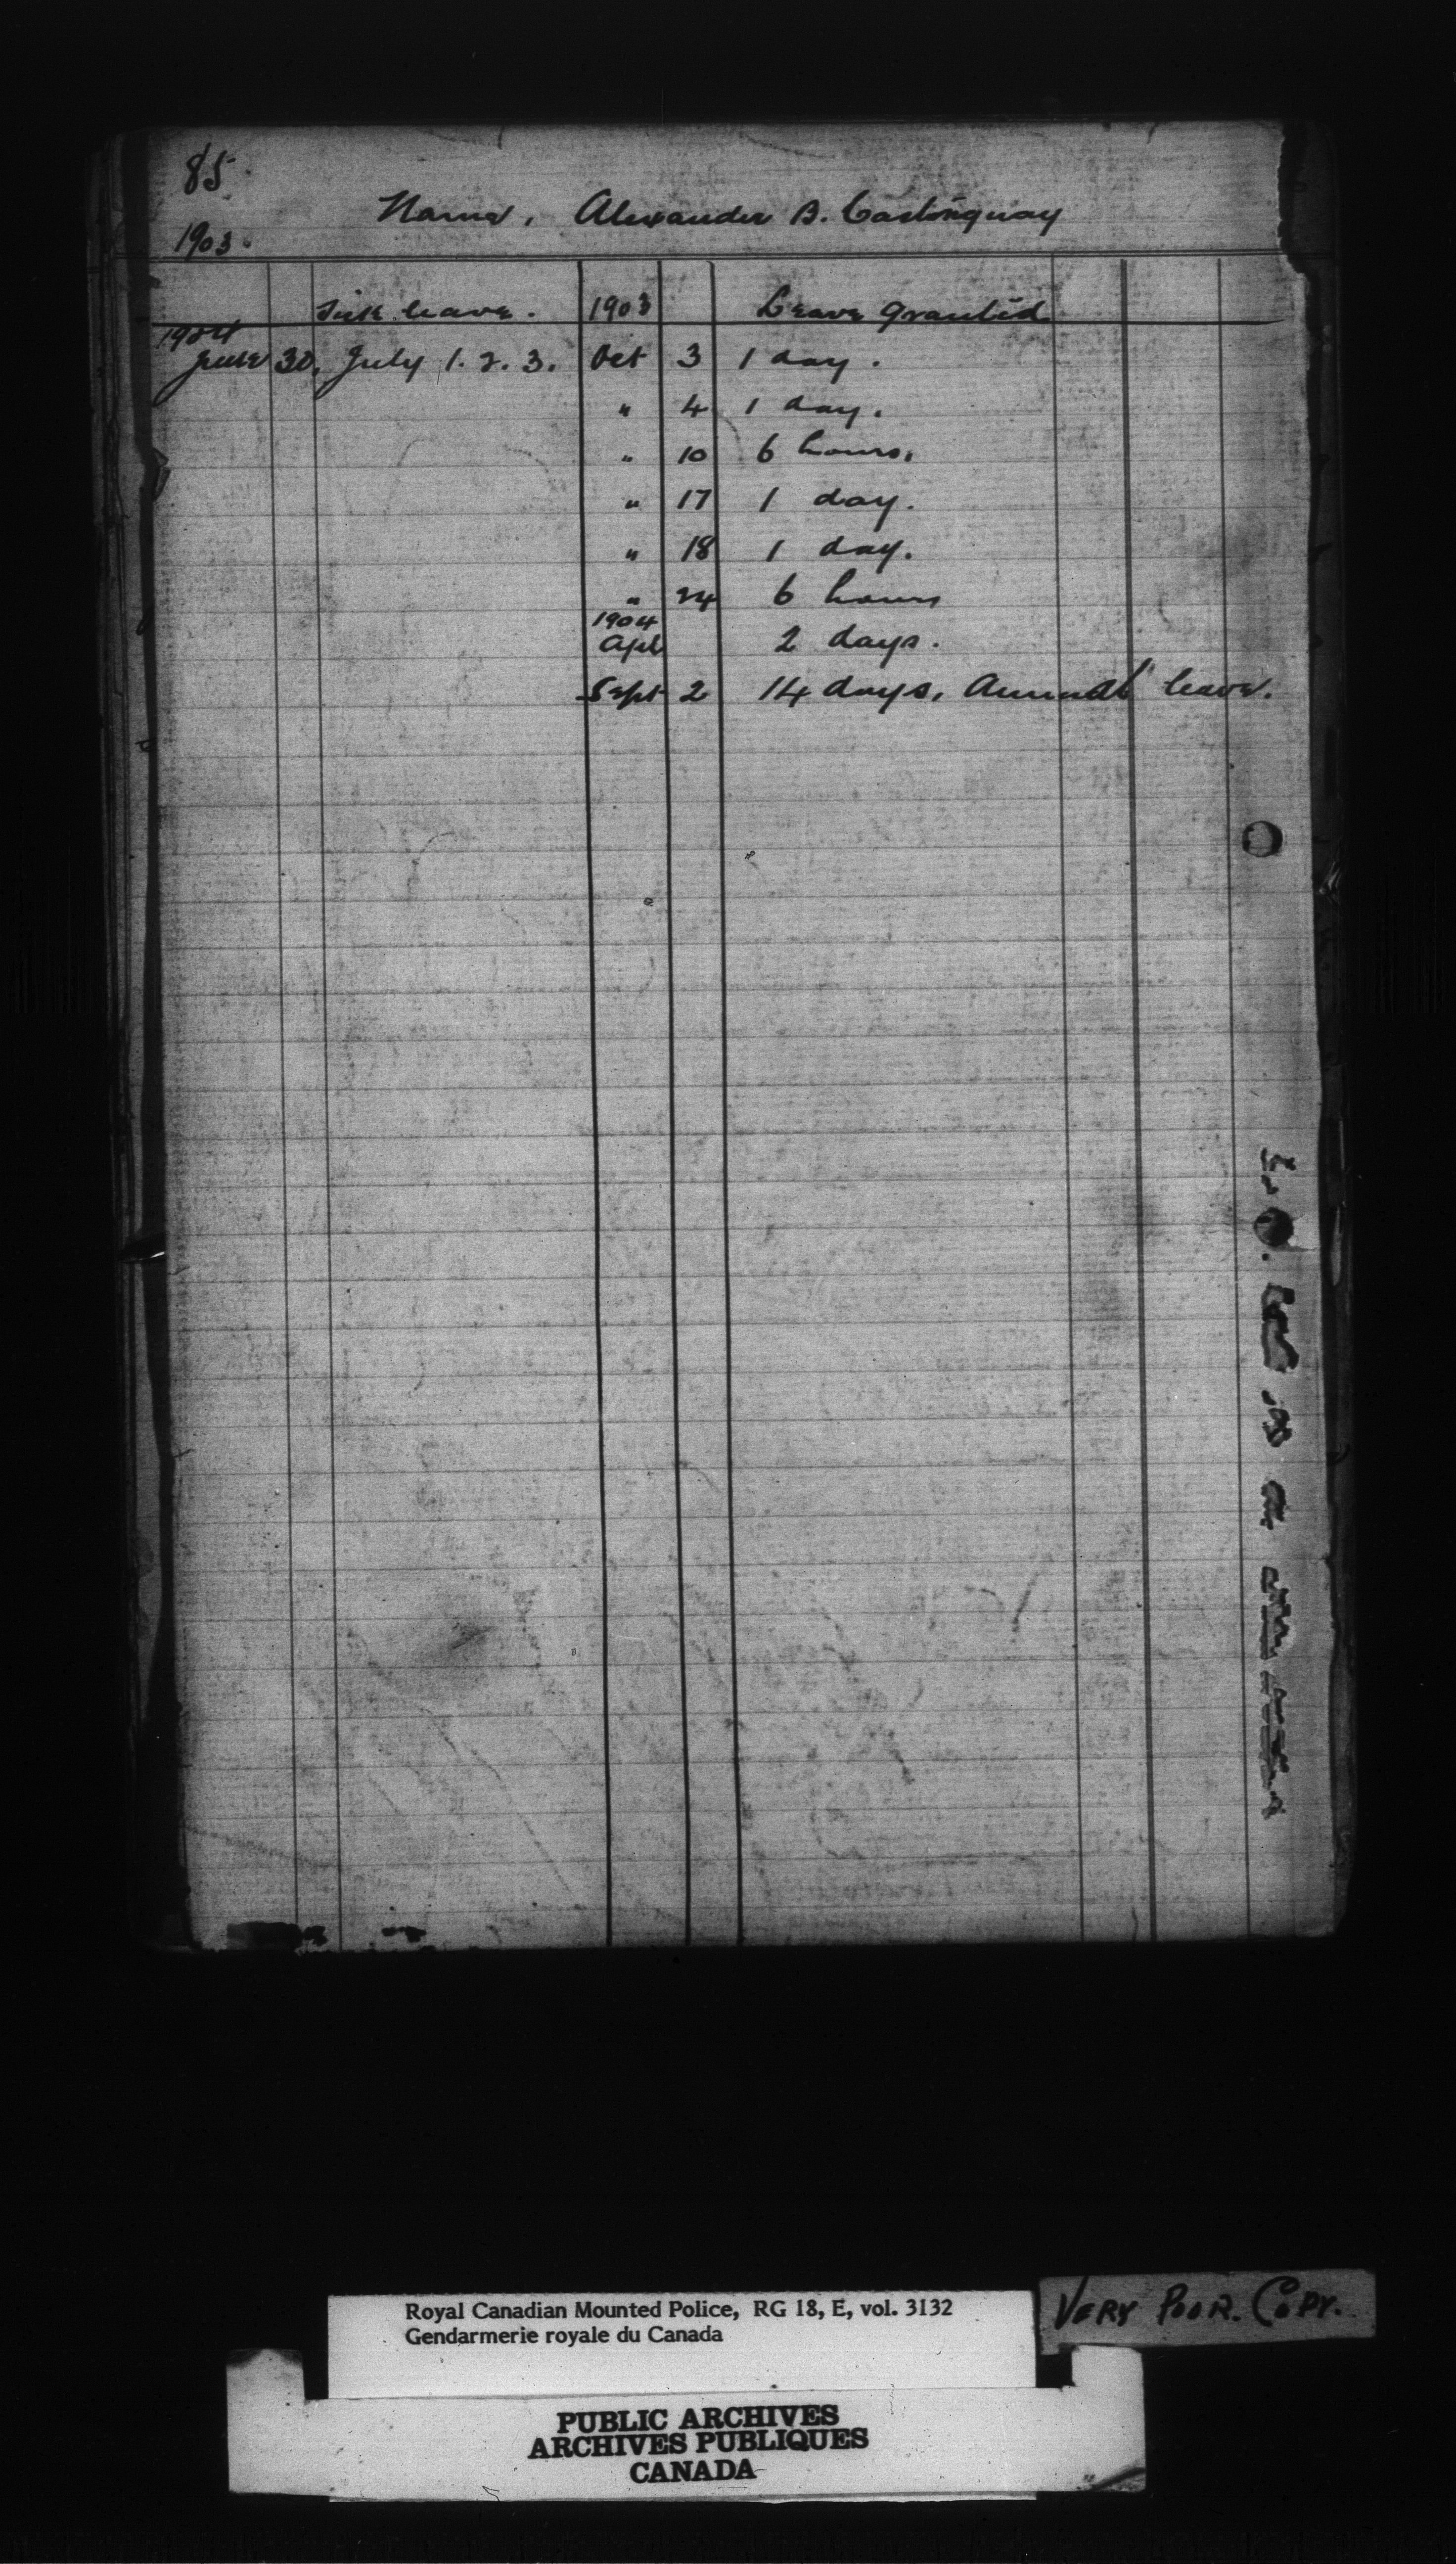 85.
1903.
Name, Alexander B. Castonguay
Sick leave. 1903 Leave granted
1904
June 30, July 1. 2. 3. Oct 3 1 day.
" 4 1 day.
" 10 6 hours.
" 17 1 day.
" 18 1 day.
" 24 6 hours
1904
Apl 2 days.
Sept 2 14 days, Annual leave.
Royal Canadian Mounted Police, RG 18, E, vol. 3132
Gendarmerie royale du Canada
VERY POOR. COPY.
PUBLIC ARCHIVES
ARCHIVES PUBLIQUES
CANADA